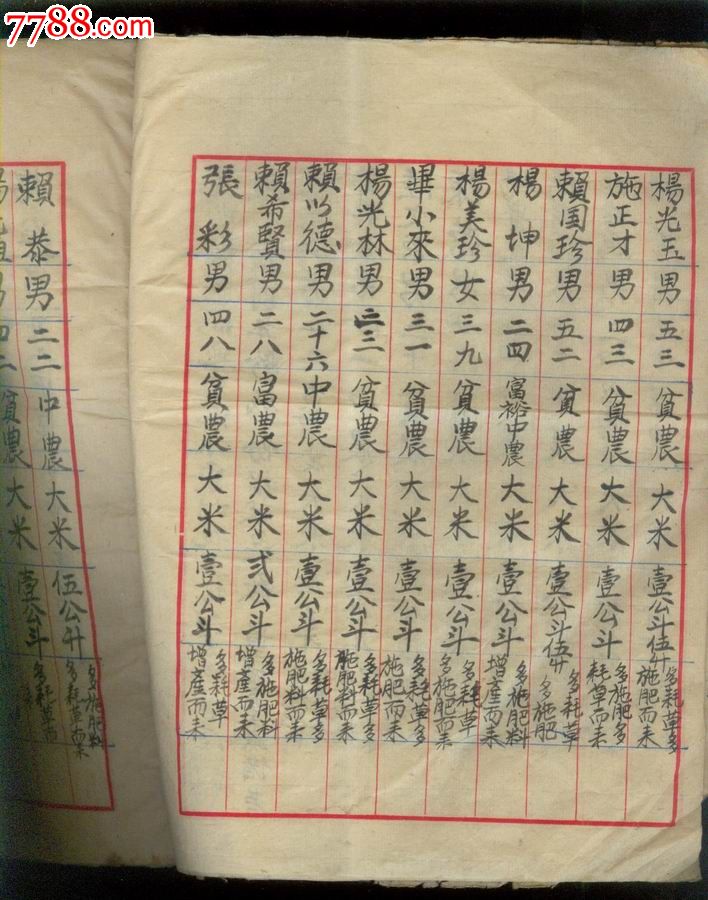 7788.com
楊光玉 男 五三 貧農 大米 壹公斗伍升 多耗草多施肥而来
施正才 男 四三 貧農 大米 壹公斗 多施肥多耗草而来
賴国珍 男 五二 貧農 大米 壹公斗伍升 多耗草多施肥
楊坤 男 二四 富裕中農 大米 壹公斗 多施肥料增產而来
楊美珍 女 三九 貧農 大米 壹公斗 多耗草多施肥而来
畢小來 男 三一 貧農 大米 壹公斗 多耗草多施肥而来
楊光林 男 三 貧農 大米 壹公斗 多耗草多施肥料而来
賴以德 男 二十六 中農 大米 壹公斗 多耗草多施肥料而来
賴希賢 男 二八 富農 大米 弍公斗 多施肥料增產而来
張彩 男 四八 貧農 大米 壹公斗 多耗草增產而来
賴恭 男 二二 中農 大米 伍公升 多施肥料多耗草而来
男 四二 貧農 大米 壹公斗 多耗草而来